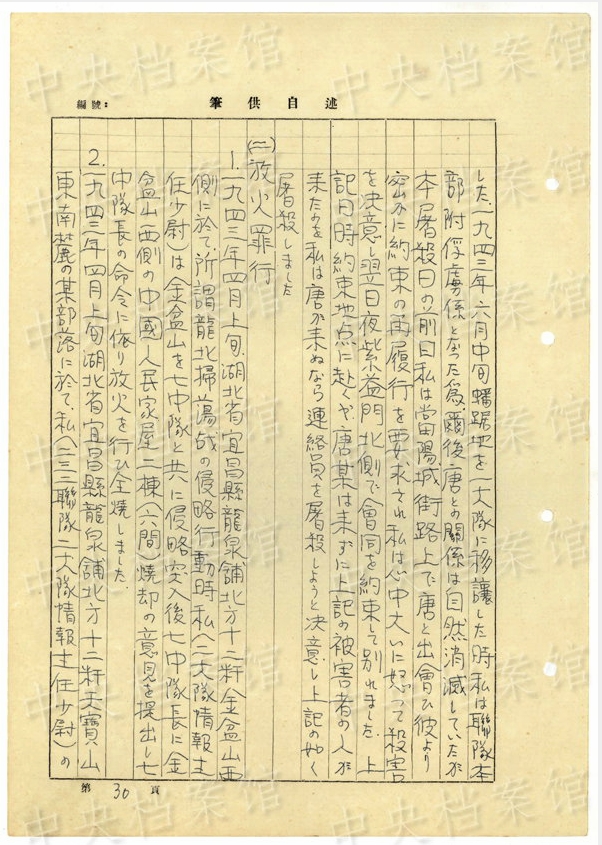 中央档案馆
編號：
筆供自述
した一九四三年六月中旬蟠踞地を一大隊に移譲した時私は聯隊本
部附俘虜係となった為爾後唐との関係は自然消滅していたが
本屠殺日の前日私は當陽城街路上で唐と出會ひ彼より
密かに約束の再履行を要求され私は心中大いに怒って殺害
を決意し翌日夜紫益門北側で會同を約束して別れました 上
記日時約束地点に赴くや唐某は来ずに上記の被害者の一人が
来たのを私は唐が来ぬなら連絡員を屠殺しようと決意し上記の如く
屠殺しました
(二)放火罪行
1.一九四三年四月上旬、湖北省宜昌縣龍泉舗北方十二粁金盆山西
側に於て、所謂龍北掃蕩戦の侵略行動時私(二大隊情報主
任少尉)は金盆山を七中隊と共に侵略突入後七中隊長に金
盆山西側の中國人民家屋二棟(六間)焼却の意見を提出し七
中隊長の命令に依り放火を行ひ全焼しました.
2.一九四三年四月上旬湖北省宜昌縣龍泉舗北方十二粁天寶山
東南麓の某部落に於て、私(二三二聯隊二大隊情報主任少尉)の
第 30 頁